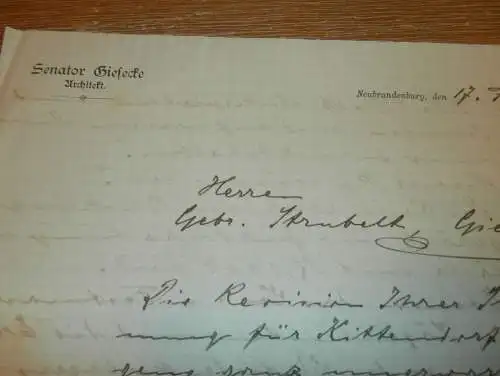 Senator Giesecke
Architekt.
Neubrandenburg, den 17.
Herren
Gebr. Strubelt, Gie
Die Revision Ihrer
nung für Kittendorf
ganz